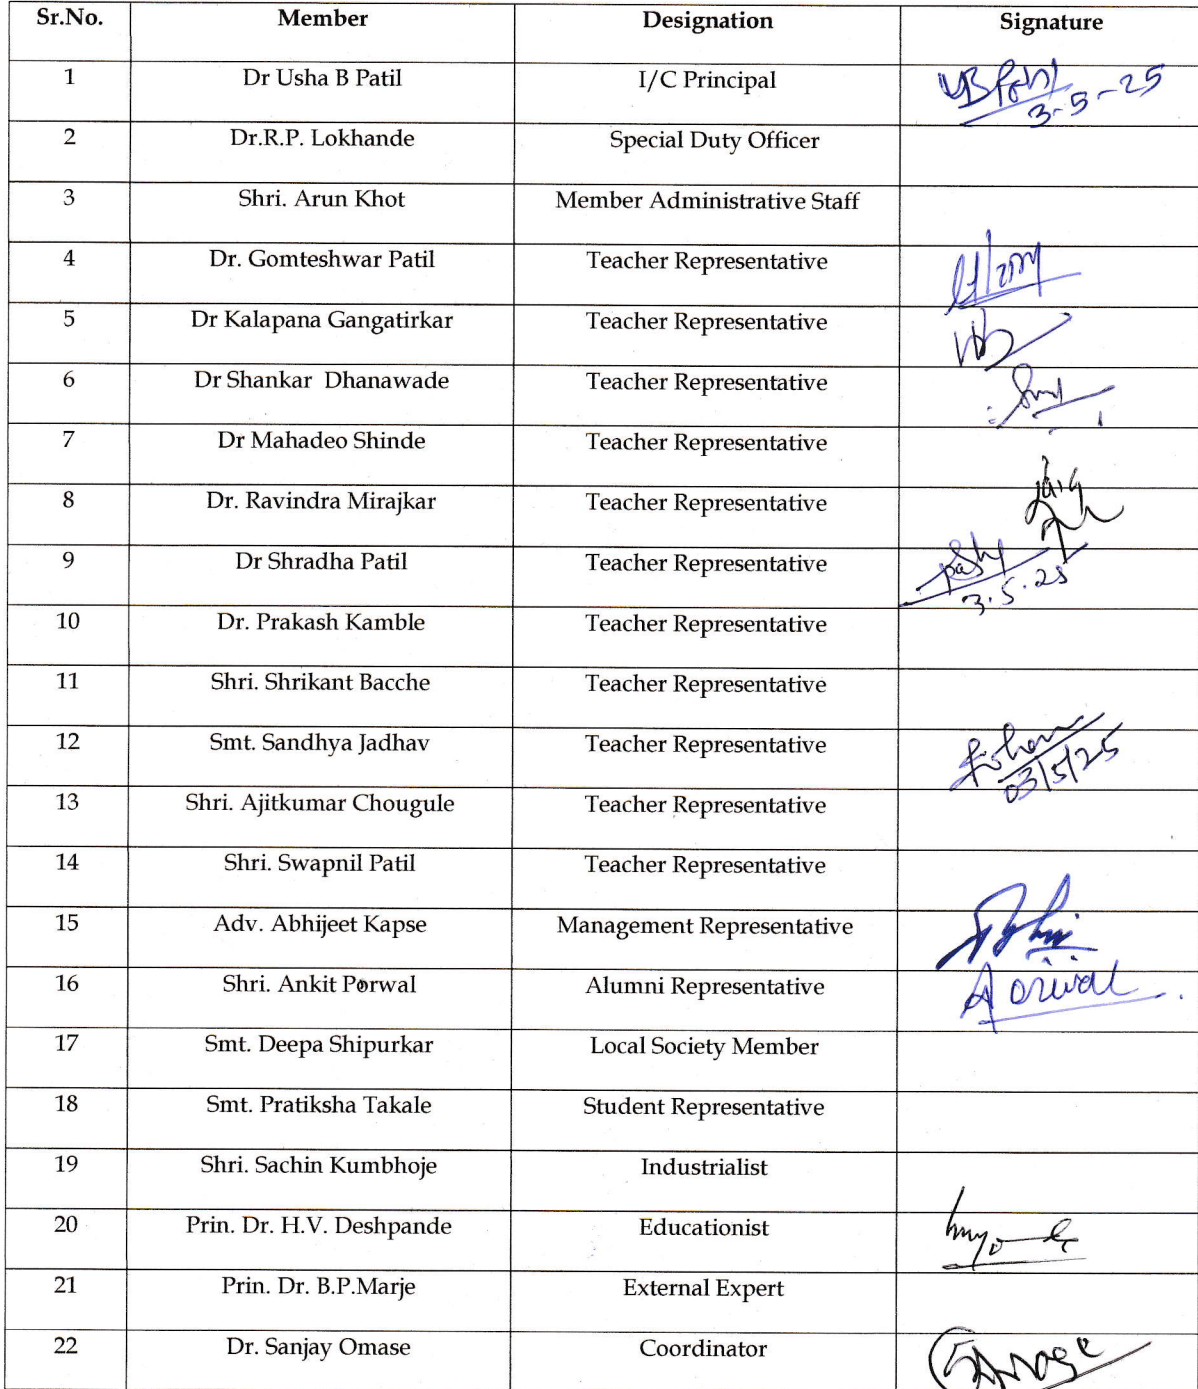 Sr.No. Member Designation Signature
1 Dr Usha B Patil I/C Principal UBPatil
3-5-25
2 Dr.R.P. Lokhande Special Duty Officer
3 Shri. Arun Khot Member Administrative Staff
4 Dr. Gomteshwar Patil Teacher Representative
5 Dr Kalapana Gangatirkar Teacher Representative
6 Dr Shankar Dhanawade Teacher Representative
7 Dr Mahadeo Shinde Teacher Representative
8 Dr. Ravindra Mirajkar Teacher Representative
9 Dr Shradha Patil Teacher Representative
3.5.25
10 Dr. Prakash Kamble Teacher Representative
11 Shri. Shrikant Bacche Teacher Representative
12 Smt. Sandhya Jadhav Teacher Representative
03/5/25
13 Shri. Ajitkumar Chougule Teacher Representative
14 Shri. Swapnil Patil Teacher Representative
15 Adv. Abhijeet Kapse Management Representative
16 Shri. Ankit Porwal Alumni Representative
17 Smt. Deepa Shipurkar Local Society Member
18 Smt. Pratiksha Takale Student Representative
19 Shri. Sachin Kumbhoje Industrialist
20 Prin. Dr. H.V. Deshpande Educationist
21 Prin. Dr. B.P.Marje External Expert
22 Dr. Sanjay Omase Coordinator